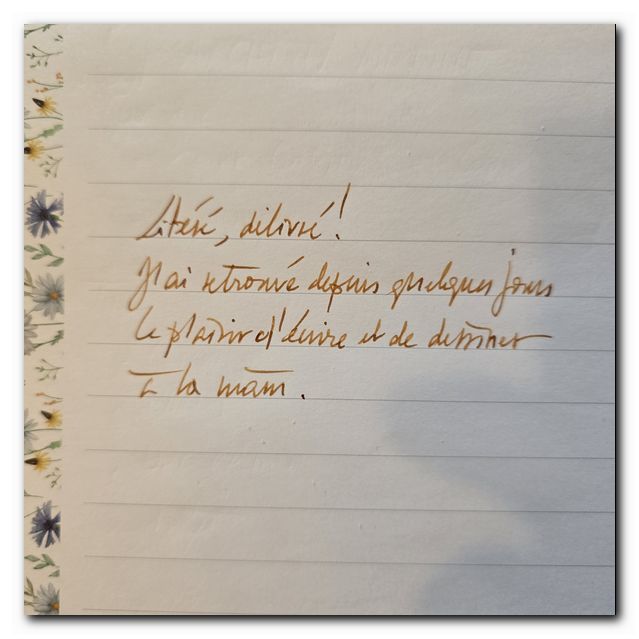 Libéré, délivré!
J'ai retrouvé depuis quelques jours
le plaisir d'écrire et de dessiner
à la main.